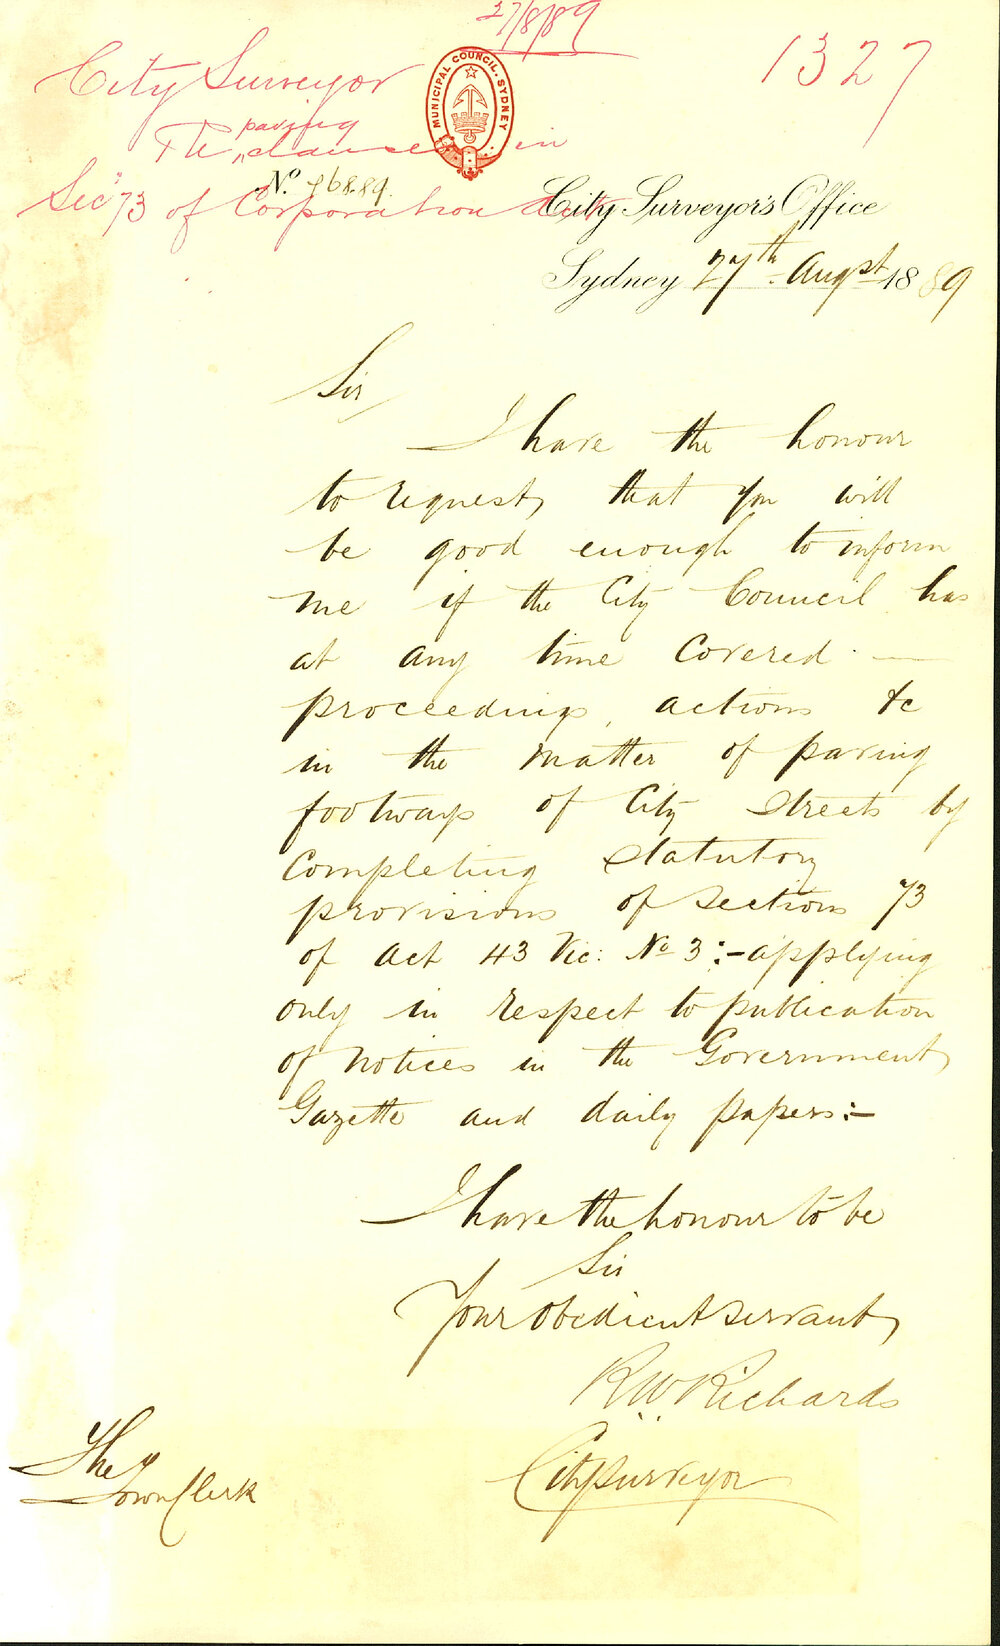 27/8/89
1327
City Surveyor
MUNICIPAL COUNCIL. SYDNEY
paving
The clauses in
Sec 73 of Corporation Act
No. 768.89.
City Surveyor's Office
Sydney 27th Augst 1889
Sir
I have the honour
to request, that you will
be good enough to inform
me if the City Council has
at any time covered —
proceedings, actions &c
in the matter of paving
footways of City Streets by
completing statutory
provisions of sections 73
of Act 43 Vic: No 3:- applying
only in respect to publication
of notices in the Government
Gazette and daily papers:-
I have the honour to be
Sir
Your obedient servant,
R.W. Richards
City Surveyor
The
Town Clerk